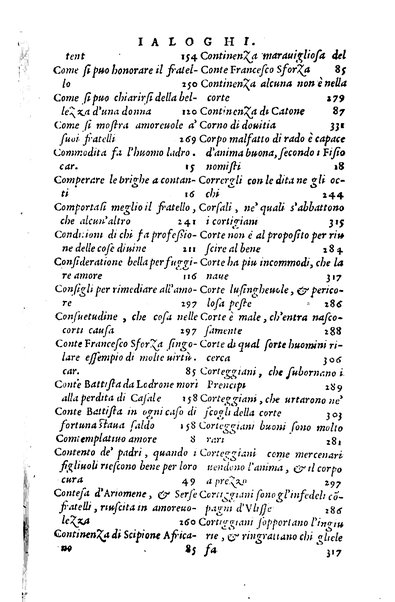 IALOGHI.
tent 154
Come si puo honorare il fratel-
lo 250
Come si puo chiarirsi della bel-
lezza d'una donna 120
Come si mostra amoreuole a
suoi fratelli 269
Commodita fa l'huomo ladro.
car. 15
Comperare le brighe a contan-
ti 16
Comportasi meglio il fratello,
che alcun'altro 241
Conditioni di chi fa professio-
ne delle cose diuine 211
Consideratione bella per fuggi-
re amore 116
Consigli per rimediare all'amo-
re 297
Consuetudine, che cosa nelle
corti causa 297
Conte Francesco Sforza singo-
lare essempio di molte uirtù.
car. 85
Conte Battista da Lodrone mori
alla perdita di Casale 158
Conte Battista in ogni caso di
fortuna staua saldo 158
Contemplatiuo amore 8
Contento de' padri, quando i
figliuoli riescono bene per loro
cura 49
Contesa d'Ariomene, & Serse
fratelli, riuscita in amoreuo-
lezza 260
Continenza di Scipione Africa-
no 85
Continenza marauigliosa del
Conte Francesco Sforza 85
Continenza alcuna non è nella
corte 279
Continenza di Catone 87
Corno di douitia 331
Corpo malfatto di rado è capace
d'anima buona, secondo i Fisio
nomisti 18
Corrergli con le dita ne gli oc-
chi 244
Corsali, ne' quali s'abbattono
i cortigiani 315
Corte non è al proposito per riu
scire al bene 284
Corte ha piu incommodi, che la
naue 317
Corte lusingheuole, & perico-
losa peste 286
Corte è male, ch'entra nasco-
samente 288
Corte di qual sorte huomini ri-
cerca 306
Corteggiani, che subornano i
Prencipi 289
Corteggiani, che urtarono ne'
scogli della corte 303
Corteggiani buoni sono molto
rari 281
Corteggiani come mercenari
uendono l'anima, & il corpo
a prezzo 297
Cortiggiani sono gl'infedeli cō-
pagni d'Vlisse 286
Cortiggiani sopportano l'ingiu
rie, & ringratiano chi gliele
fa 317